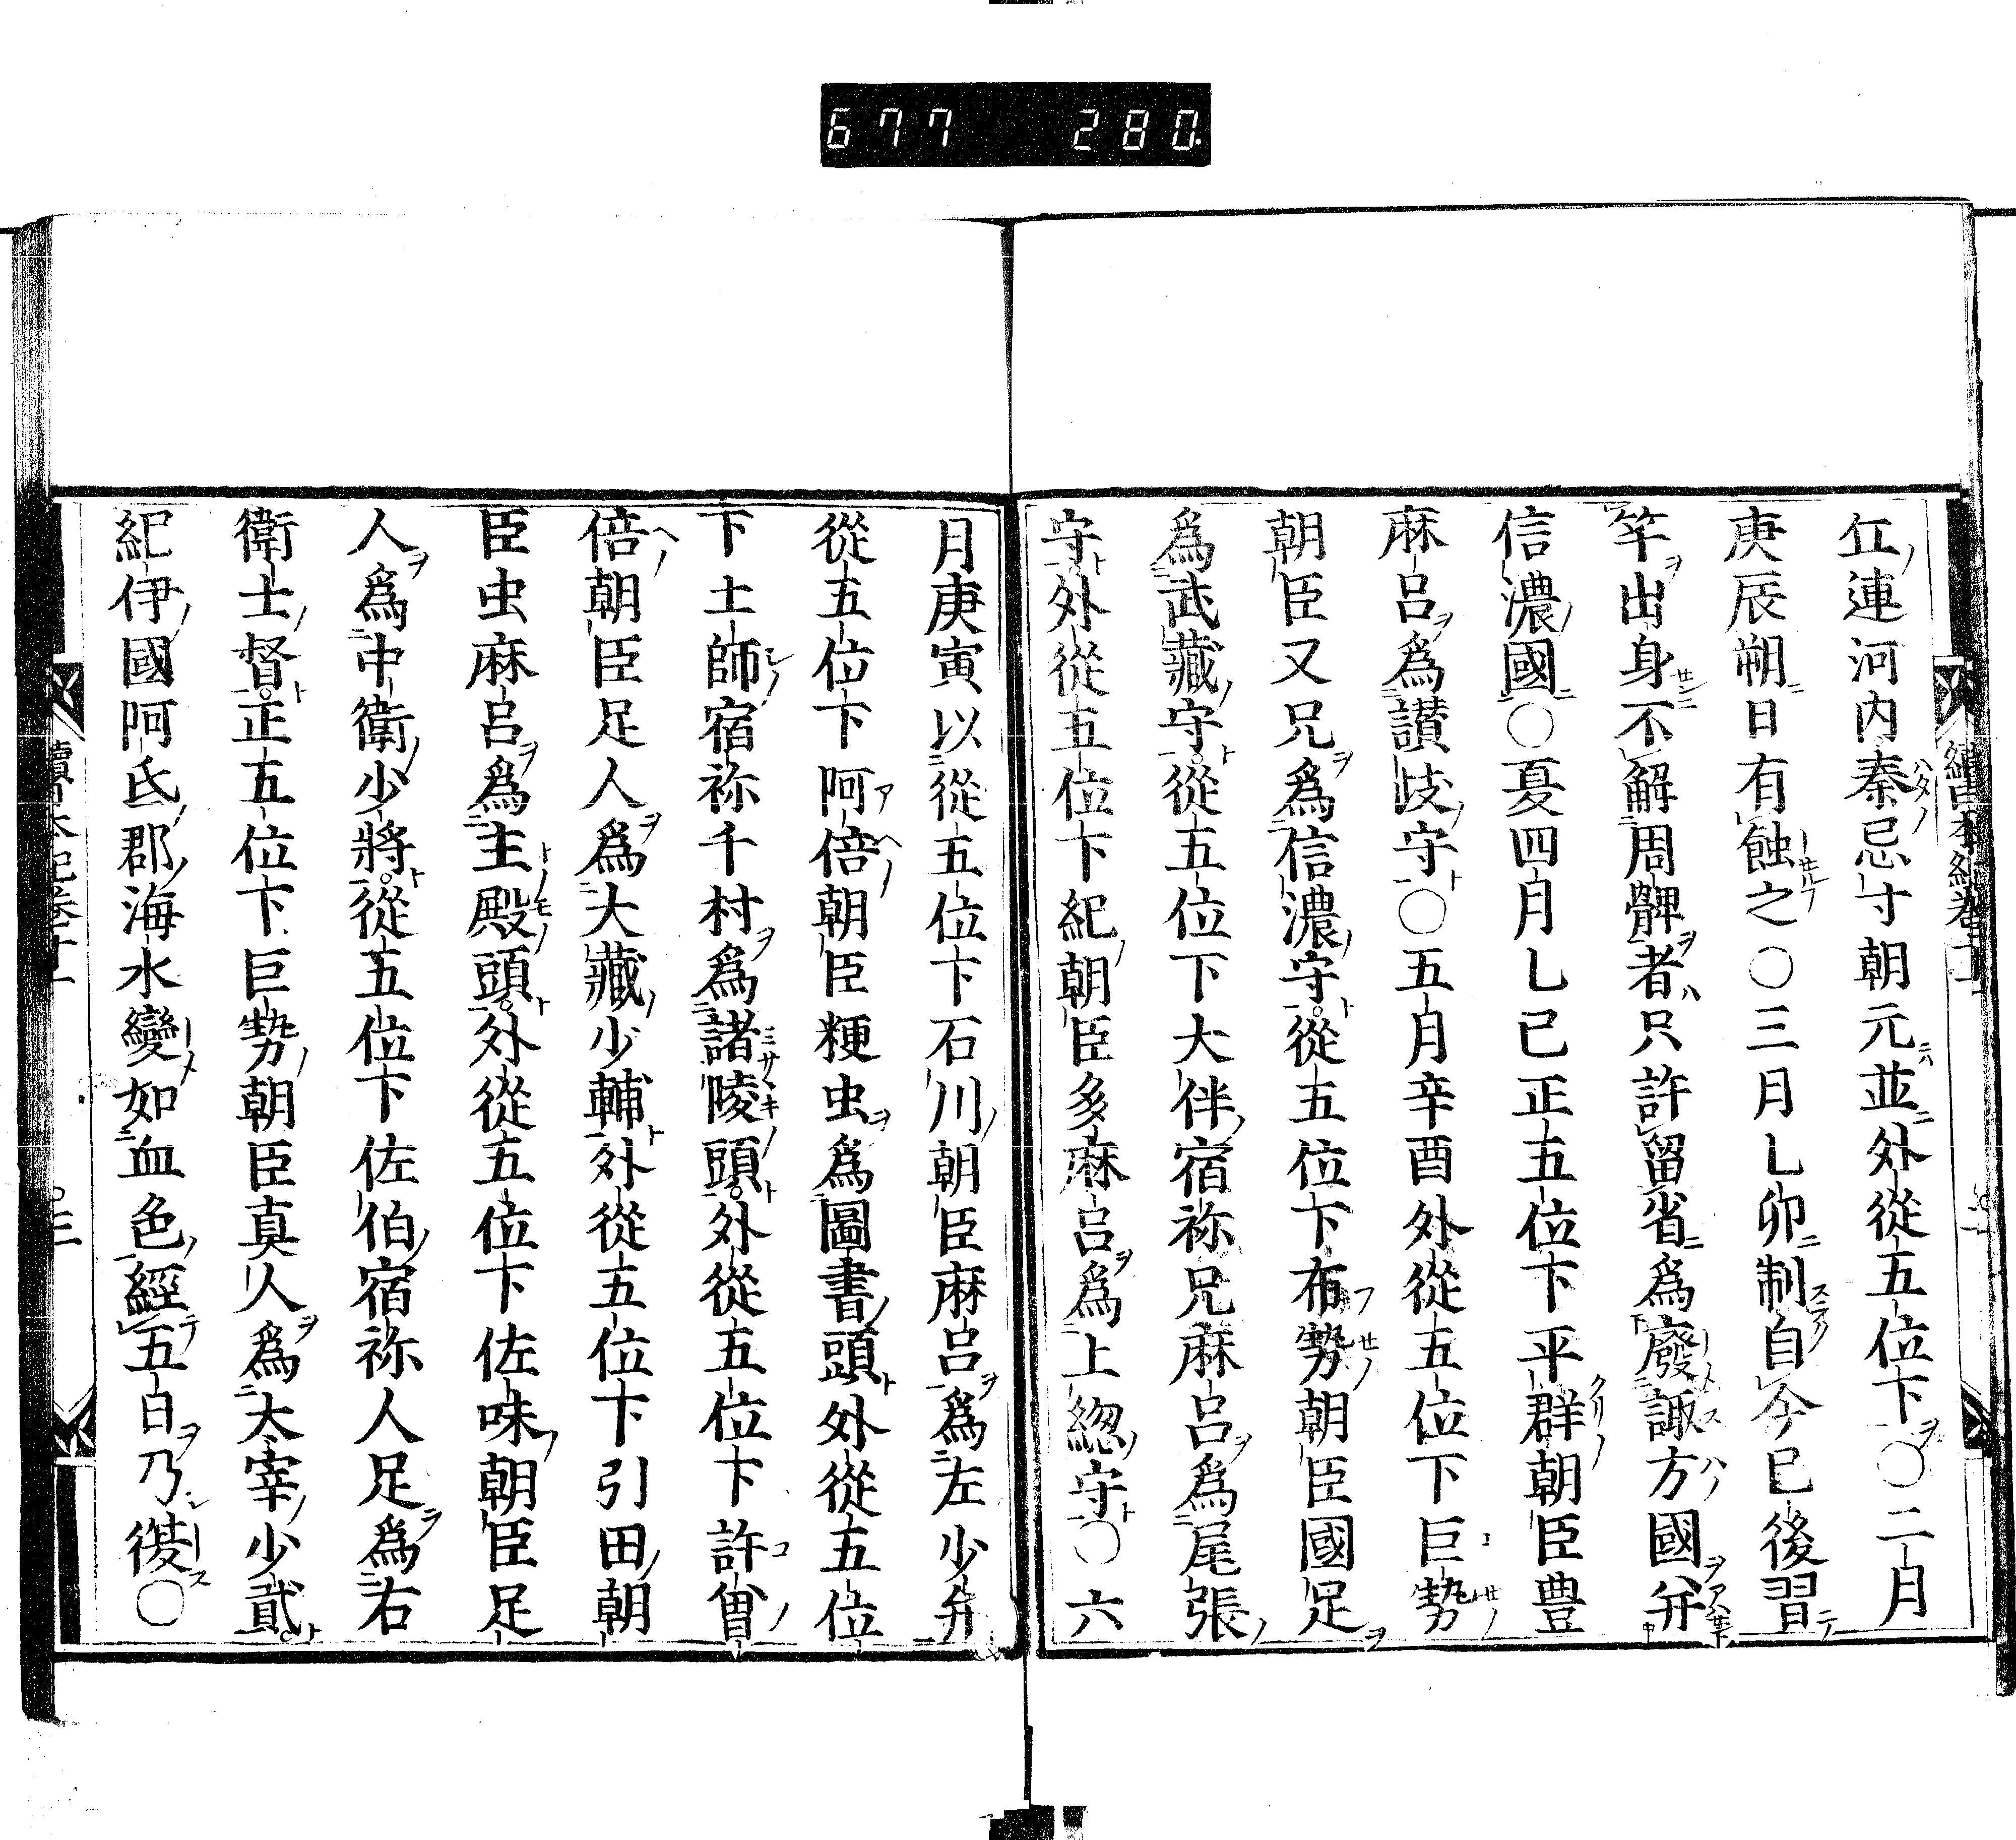 677 280.
丘連河内秦忌寸朝元並外從五位下〇二月
庚辰朔日有蝕之〇三月乚卯制自今已後習
竿出身不解周髀者只許留省焉廢諏方國并
信濃國〇夏四月乚已正五位下平群朝臣豊
麻呂爲讃岐守〇五月辛酉外從五位下巨勢
朝臣又兄爲信濃守從五位下布勢朝臣國足
爲武藏守從五位下大伴宿祢兄麻呂爲尾張
守外從五位下紀朝臣多麻呂爲上総守〇六
月庚寅以從五位下石川朝臣麻呂爲左少弁
從五位下阿倍朝臣粳虫爲圖書頭外從五位
下土師宿祢千村爲諸陵頭外從五位下許曽
倍朝臣足人爲大藏少輔外從五位下引田朝
臣虫麻呂爲主殿頭外從五位下佐味朝臣足
人爲中衛少將從五位下佐伯宿祢人足爲右
衛士督正五位下巨勢朝臣真人爲太宰少貳
紀伊國阿氐郡海水變如血色經五日乃復〇
續日本紀卷十一